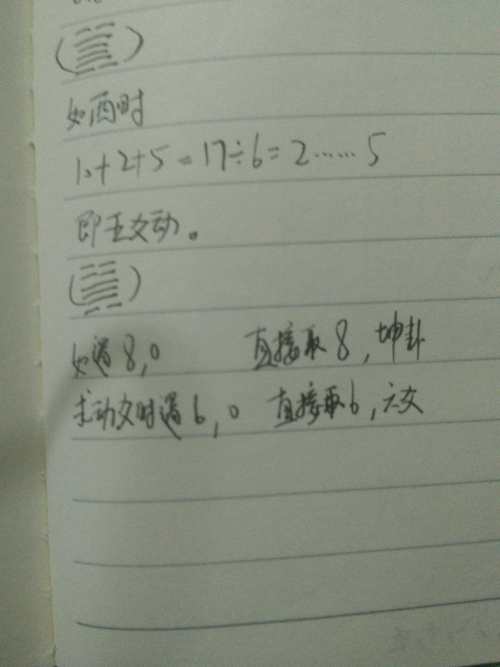 (䷛)
如酉时
10+2+5=17÷6=2……5
即五爻动。
如遇8,0 直接取8,坤卦
求动爻时遇6,0 直接取6,六爻